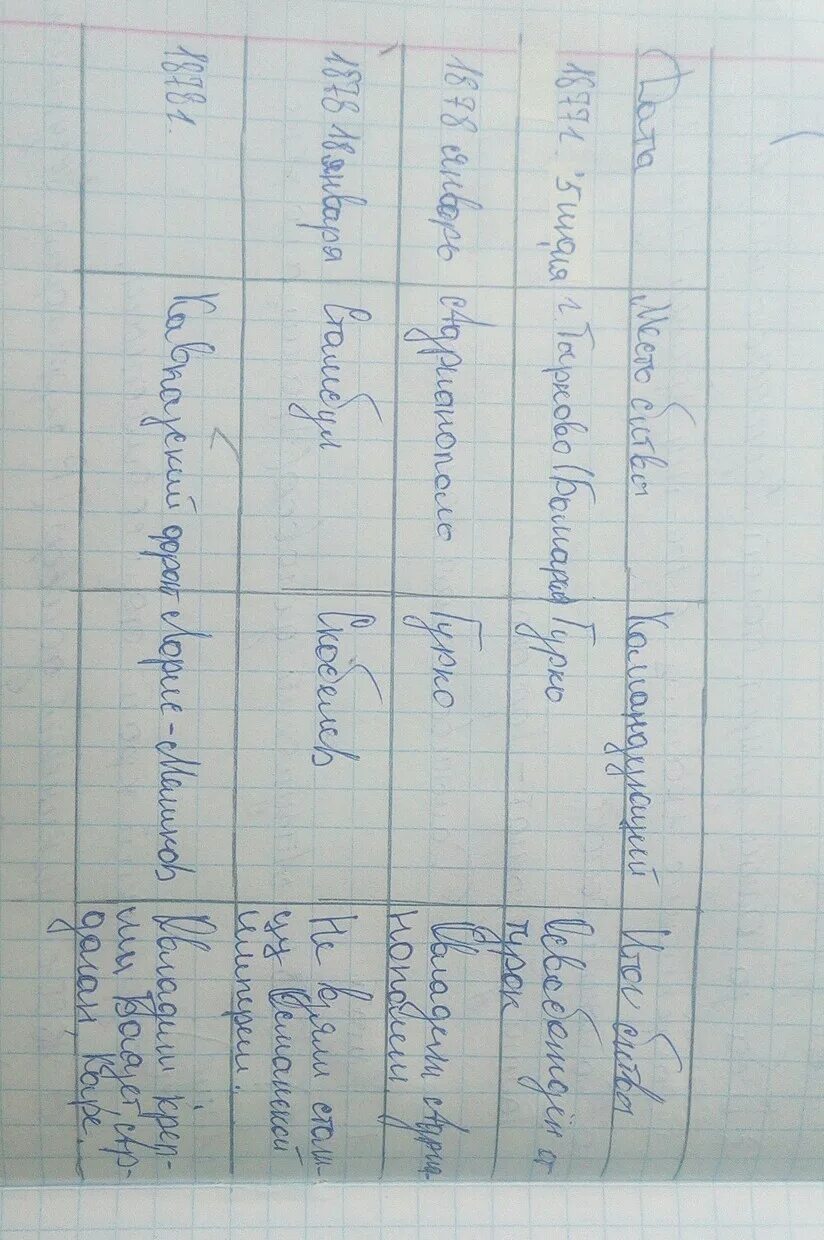 Дата Место битвы Командующий Итог битвы
1877г. 25 июня г. Тырново (Болгария) Гурко Освобождён от
турок
1878 январь Адрианополь Гурко Овладели Адриа-
нополем.
1878 18 января Стамбул Скобелев Не взяли столи-
цу Османской
империи.
1878г. Кавказский фронт Лорис-Меликов Овладели креп-
ми Баязет, Ар-
даган, Карс.